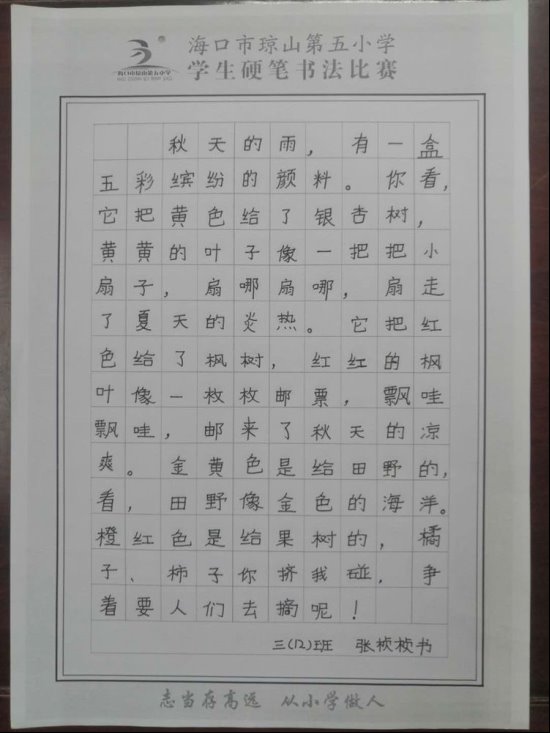 海口市琼山第五小学
海口市琼山第五小学
学生硬笔书法比赛
秋天的雨，有一盒
五彩缤纷的颜料。你看，
它把黄色给了银杏树，
黄黄的叶子像一把把小
扇子，扇哪扇哪，扇走
了夏天的炎热。它把红
色给了枫树，红红的枫
叶像一枚枚邮票，飘哇
飘哇，邮来了秋天的凉
爽。金黄色是给田野的，
看，田野像金色的海洋。
橙红色是给果树的，橘
子、柿子你挤我碰，争
着要人们去摘呢！
三(12)班 张桢桢书
志当存高远 从小学做人